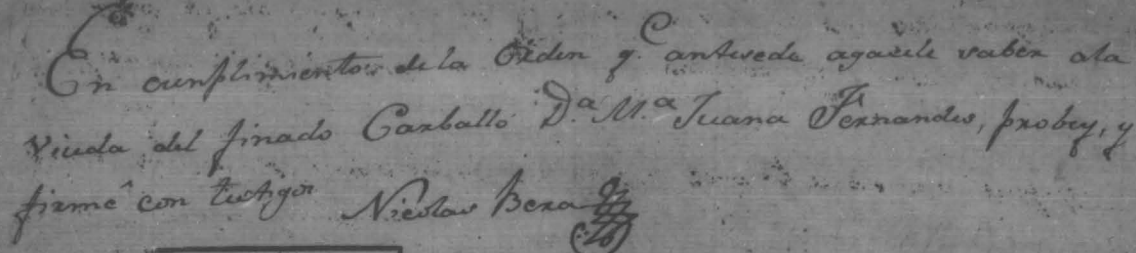 En cunplimiento de la Orden q.e antesede agasele saber ala
viuda del finado Carballo D.a M.a Juana Fernandes, probey, y
firmé con testigos Nicolas Bera